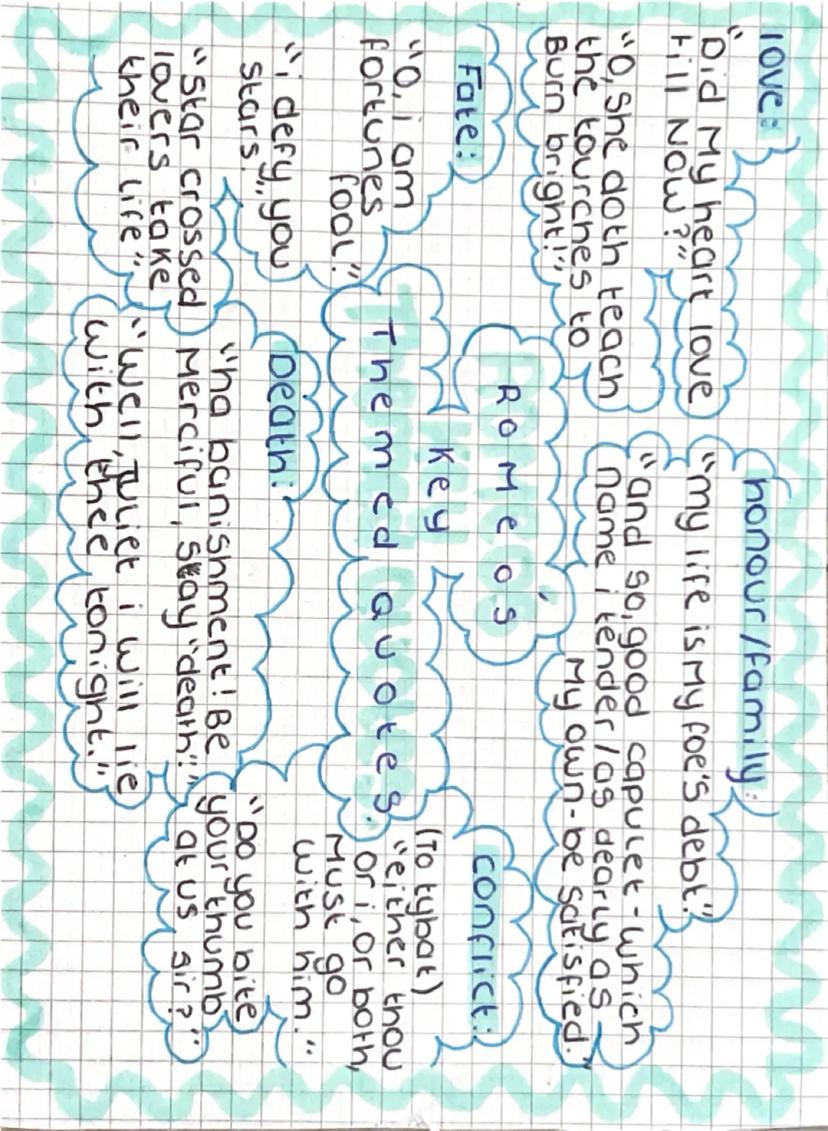 Romeo's
Key
Themed quotes.
love:
"Did My heart love
till Now?"
"O, she doth teach
the tourches to
Burn bright!"
Fate:
"O, i am
fortunes
fool!"
"i defy, you
stars."
"Star crossed
lovers take
their life"
honour/family:
"my life is My foe's debt."
"and so, good capulet-which
name i tender/as dearly as
My own-be satisfied."
Death:
"no banishment! Be
Merciful, say "death!"
"Well, Juliet i will lie
with thee tonight."
conflict:
(To tybat)
"either thou
or i, or both,
Must go
with him."
"Do you bite
your thumb
at us sir?"